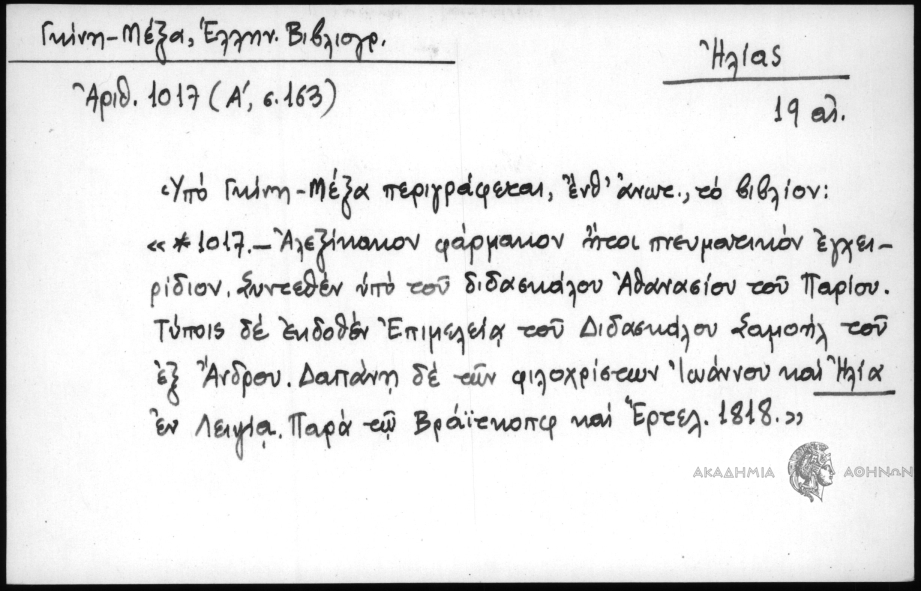 Γκίνη-Μέξα, Ἑλλην. Βιβλιογρ.
Ἀριθ. 1017 (Α΄, σ. 163)
Ἠλίας
19 αἰ.
Ὑπό Γκίνη-Μέξα περιγράφεται, ἔνθ' ἀνωτ., τό βιβλίον:
«*1017.– Ἀλεξίκακον φάρμακον ἤτοι πνευματικόν ἐγχει-
ρίδιον. Συντεθέν ὑπό τοῦ διδασκάλου Ἀθανασίου τοῦ Παρίου.
Τύποις δέ ἐκδοθέν Ἐπιμελείᾳ τοῦ Διδασκάλου Σαμουήλ τοῦ
ἐξ Ἄνδρου. Δαπάνῃ δέ τῶν φιλοχρίστων Ἰωάννου καί Ἠλία
ἐν Λειψίᾳ. Παρά τῷ Βράϊτκοπφ καί Ἕρτελ. 1818.»
ΑΚΑΔΗΜΙΑ ΑΘΗΝΩΝ